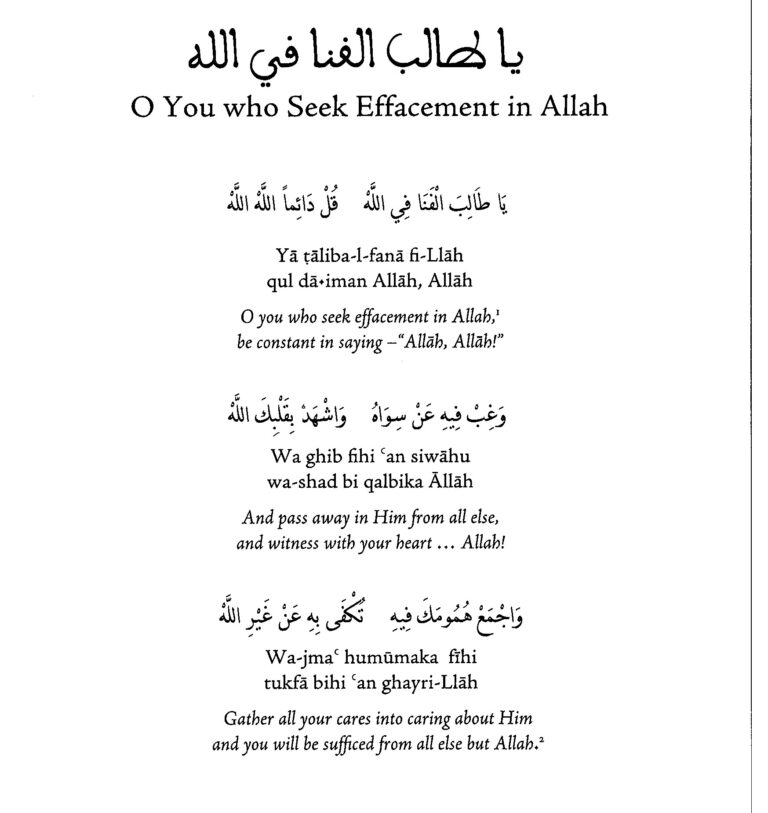 يا طالب الفنا في الله
O You who Seek Effacement in Allah
يَا طَالِبَ الْفَنَا فِي اللَّهْ قُلْ دَائِماً اللَّهْ اللَّهْ
Yā ṭāliba-l-fanā fi-Llāh
qul dā•iman Allāh, Allāh
O you who seek effacement in Allah,¹
be constant in saying –“Allāh, Allāh!”
وَغِبْ فِيهِ عَنْ سِوَاهُ وَاشْهَدْ بِقَلْبِكَ اللَّهْ
Wa ghib fihi ʿan siwāhu
wa-shad bi qalbika Āllāh
And pass away in Him from all else,
and witness with your heart … Allah!
وَاجْمَعْ هُمُومَكَ فِيهِ تُكْفَى بِهِ عَنْ غَيْرِ اللَّهْ
Wa-jmaʿ humūmaka fīhi
tukfā bihi ʿan ghayri-Llāh
Gather all your cares into caring about Him
and you will be sufficed from all else but Allah.²